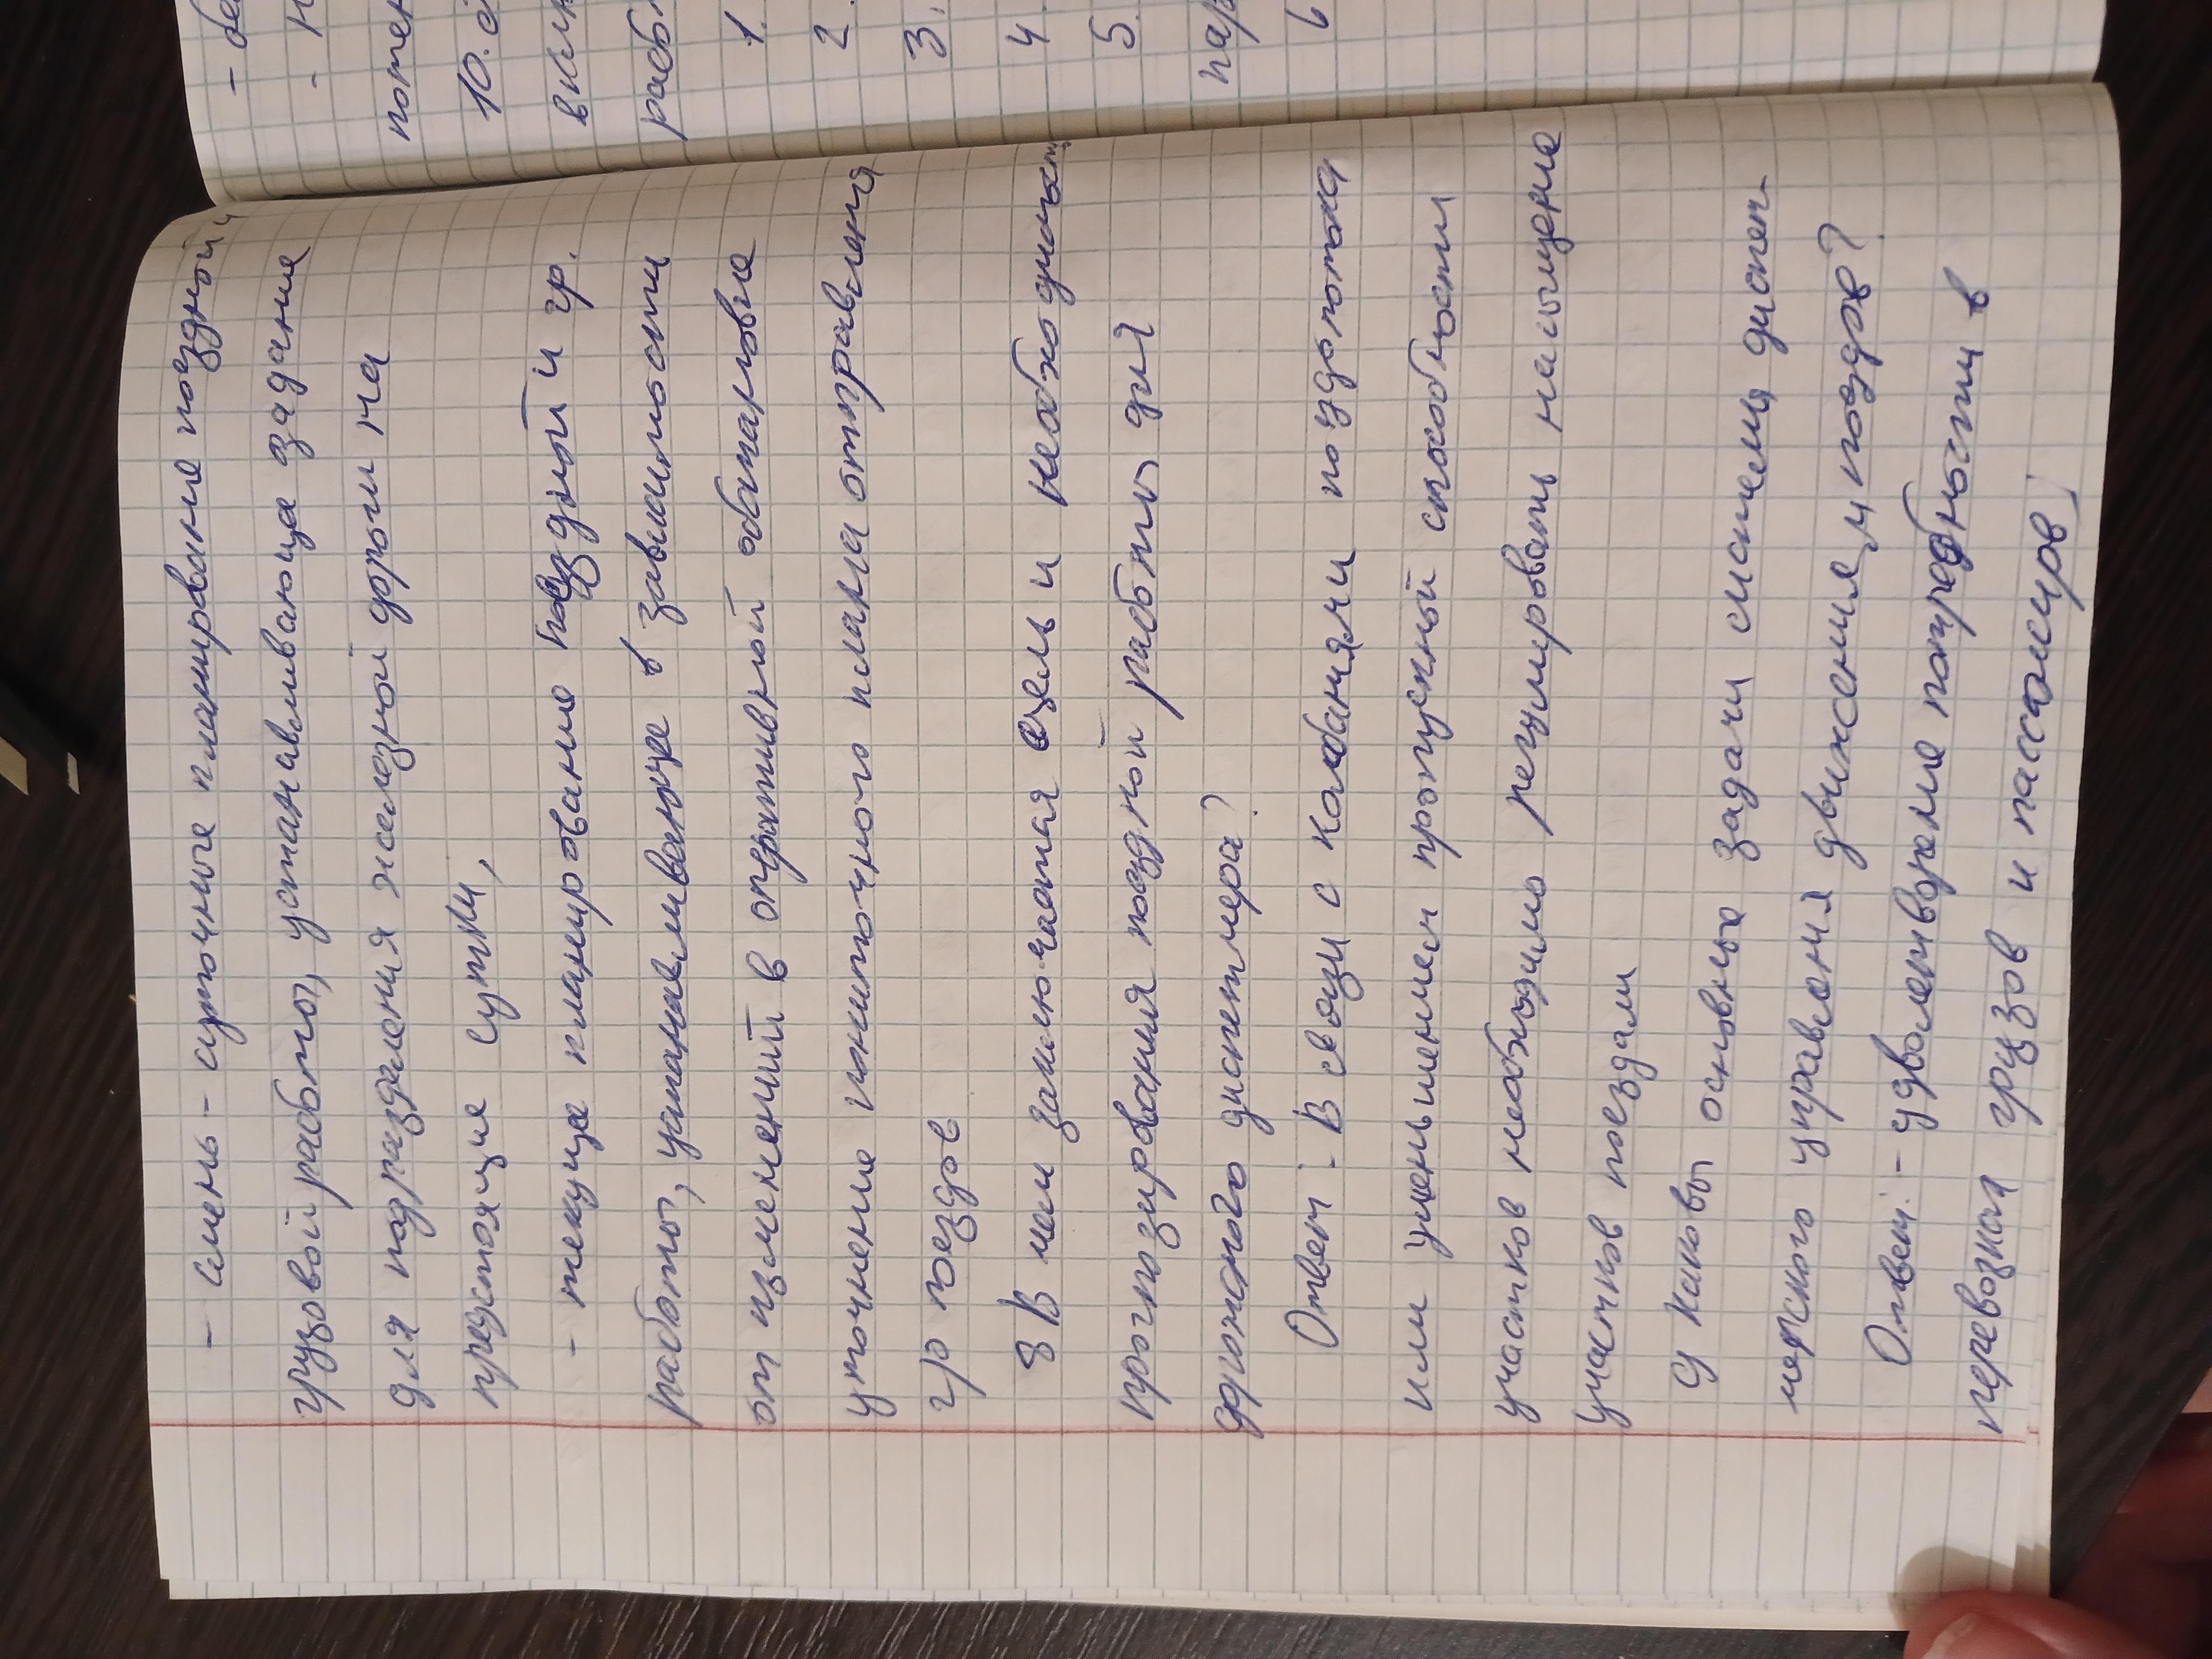 - смено - суточное планирование поездной и
грузовой работы, устанавливающа задание
для подразделения железной дороги на
предстоящие сутки,
- текуще планирование поездной и гр.
работы, устанавливающе в зависимости
от изменений в оперативной обстановке
уточнение пониточного плана отправления
гр поездов
8 В чем заключается цель и необходимость
прогнозирования поездной работы для
дорожного диспетчера?
Ответ: - В связи с колебаниями поездопотока
или уменьшением пропускной способности
участков необходимо регулировать насыщение
участков поездами
9 Каковы основные задачи системы диспет-
черского управления движением поездов?
Ответ: - удволетворение потребности в
перевозках грузов и пассажиров;
- бе
- н
потен
10. с
вклю
рабо
1.
2.
3.
4.
5.
пар
6